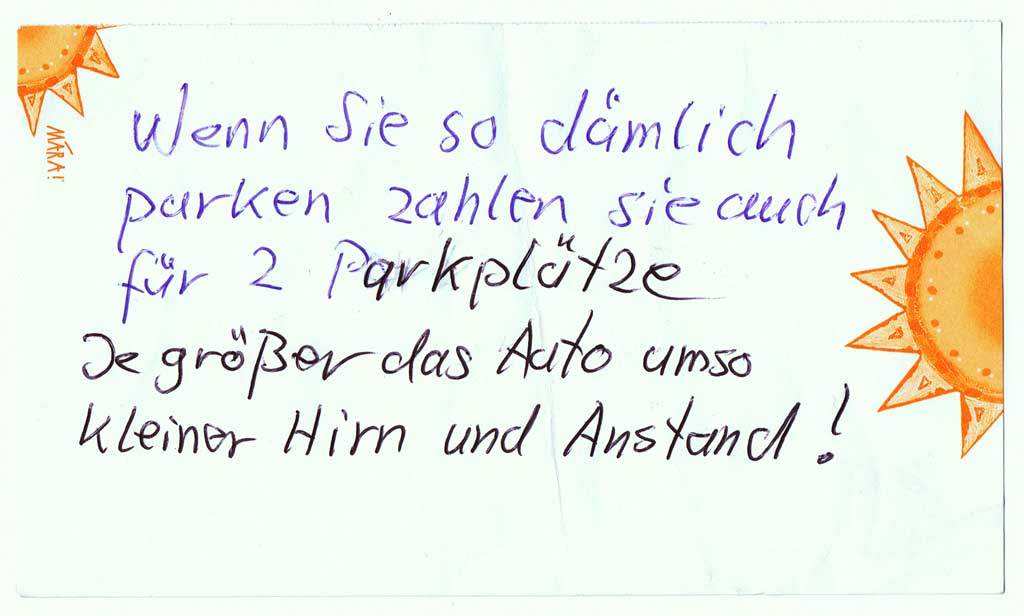 MARA!
Wenn Sie so dämlich
parken zahlen sie auch
für 2 Parkplätze
Je größer das Auto umso
kleiner Hirn und Anstand!